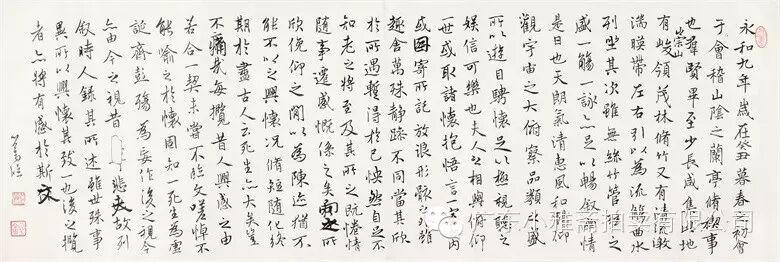 永和九年歲在癸丑暮春之初會
于會稽山陰之蘭亭脩稧事
也羣賢畢至少長咸集此地
有崇山峻領茂林脩竹又有清流激
湍暎帶左右引以為流觴曲水
列坐其次雖無絲竹管弦之
盛一觴一詠亦足以暢敘幽情
是日也天朗氣清惠風和暢仰
觀宇宙之大俯察品類之盛
所以遊目騁懷足以極視聽之
娛信可樂也夫人之相與俯仰
一世或取諸懷抱悟言一室之內
或因寄所託放浪形骸之外雖
趣舍萬殊靜躁不同當其欣
於所遇暫得於己怏然自足不
知老之將至及其所之既惓情
隨事遷感慨係之矣向之所
欣俛仰之閒以為陳迹猶不
能不以之興懷況脩短隨化終
期於盡古人云死生亦大矣豈
不痛哉每攬昔人興感之由
若合一契未嘗不臨文嗟悼不
能喻之於懷固知一死生為虛
誕齊彭殤為妄作後之視今
亦由今之視昔悲夫故列
敘時人錄其所述雖世殊事
異所以興懷其致一也後之攬
者亦將有感於斯文
东小雅斋拍卖有限公司